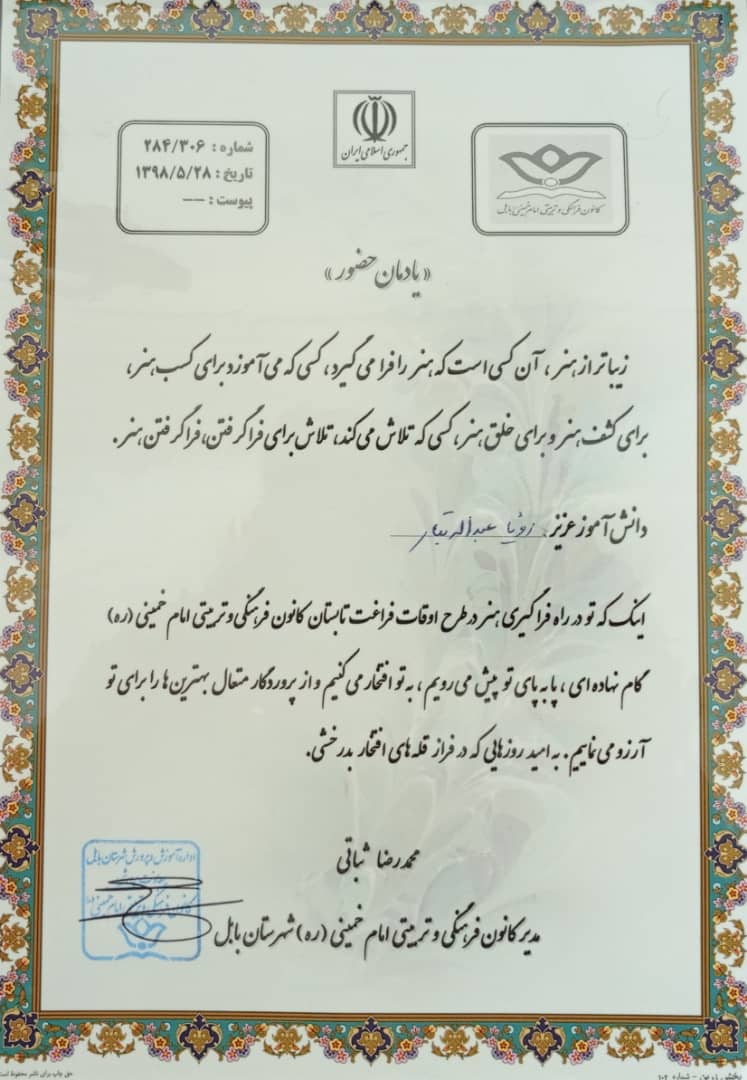 جمهوری اسلامی ایران
شماره : ۲۸۴/۳۰۶
تاریخ : ۱۳۹۸/۵/۲۸
پیوست : ——
کانون فرهنگی و تربیتی امام خمینی بابل
«یادمان حضور»
زیباتر از هنر ، آن کسی است که هنر را فرا می گیرد ، کسی که می آموزد برای کسب هنر ،
برای کشف هنر و برای خلق هنر ، کسی که تلاش می کند ، تلاش برای فراگرفتن ، فراگرفتن هنر .
دانش آموز عزیز رؤیا عبدالهتبار
اینک که تو در راه فراگیری هنر در طرح اوقات فراغت تابستان کانون فرهنگی و تربیتی امام خمینی (ره)
گام نهاده ای ، پا به پای تو پیش می رویم ، به تو افتخار می کنیم و از پروردگار متعال بهترین ها را برای تو
آرزو می نماییم . به امید روزهایی که در فراز قله های افتخار بدرخشی .
محمدرضا ثباتی
مدیر کانون فرهنگی و تربیتی امام خمینی (ره) شهرستان بابل
اداره آموزش و پرورش شهرستان بابل
کانون فرهنگی تربیتی امام خمینی
حق چاپ برای ناشر محفوظ است